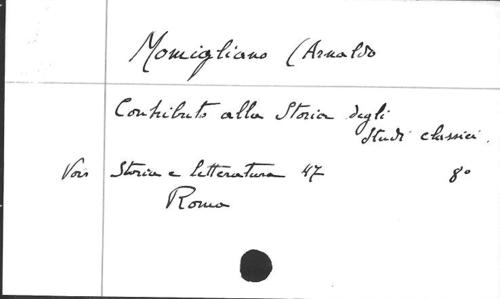 Momigliano (Arnaldo
Contributo alla Storia degli
Studi classici.
Voir Storia e letteratura 47 8°
Roma